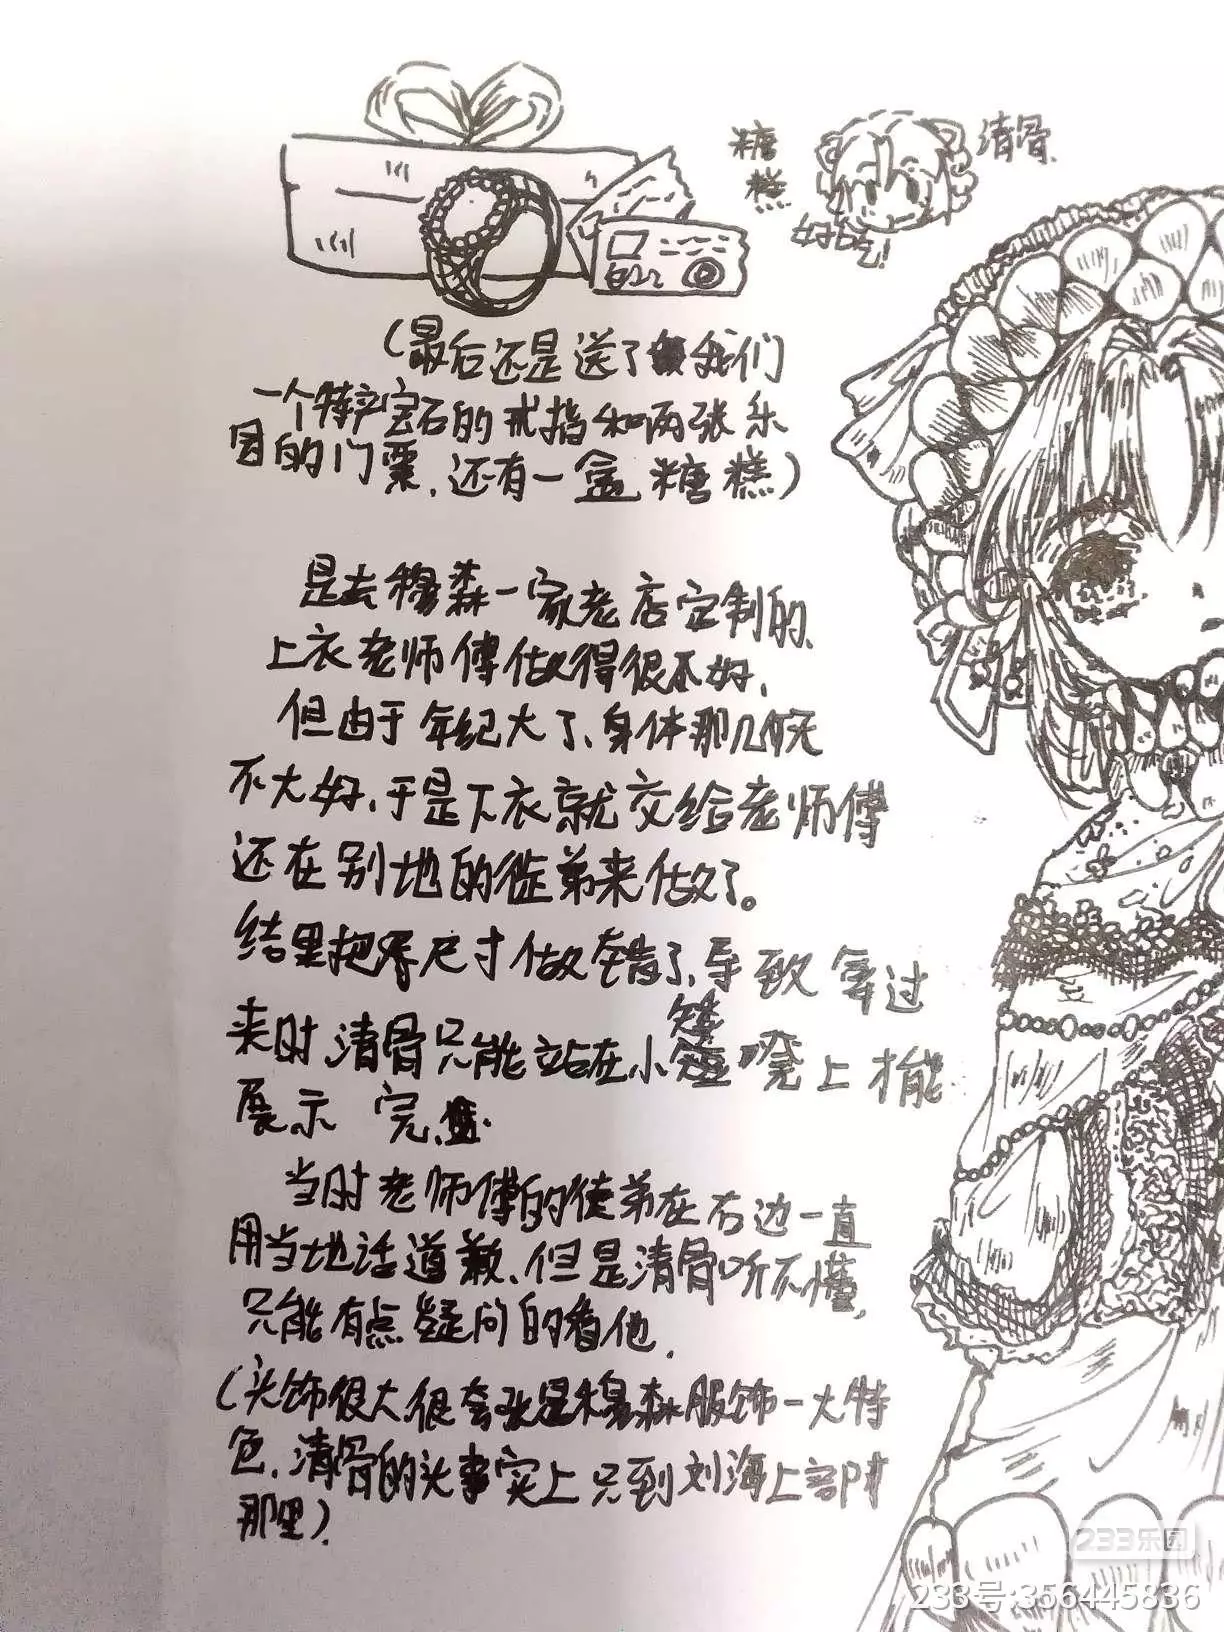 糖糕
清骨
好吃!
(最后还是送了我们
一个特产宝石的戒指和两张乐
园的门票,还有一盒糖糕)
是去穆森一家老店定制的、
上衣老师傅做得很不好,
但由于年纪大了、身体那几天
不大好,于是下衣就交给老师傅
还在别地的徒弟来做了。
结果把尺寸做错了,导致穿过
来时清骨只能站在小矮凳上才能
展示完
当时老师傅的徒弟在右边一直
用当地话道歉、但是清骨听不懂,
只能有点疑问的看他.
(头饰很大很夸张是穆森服饰一大特
色,清骨的头事实上只到刘海上部
那里)
233乐园
233号:356445836